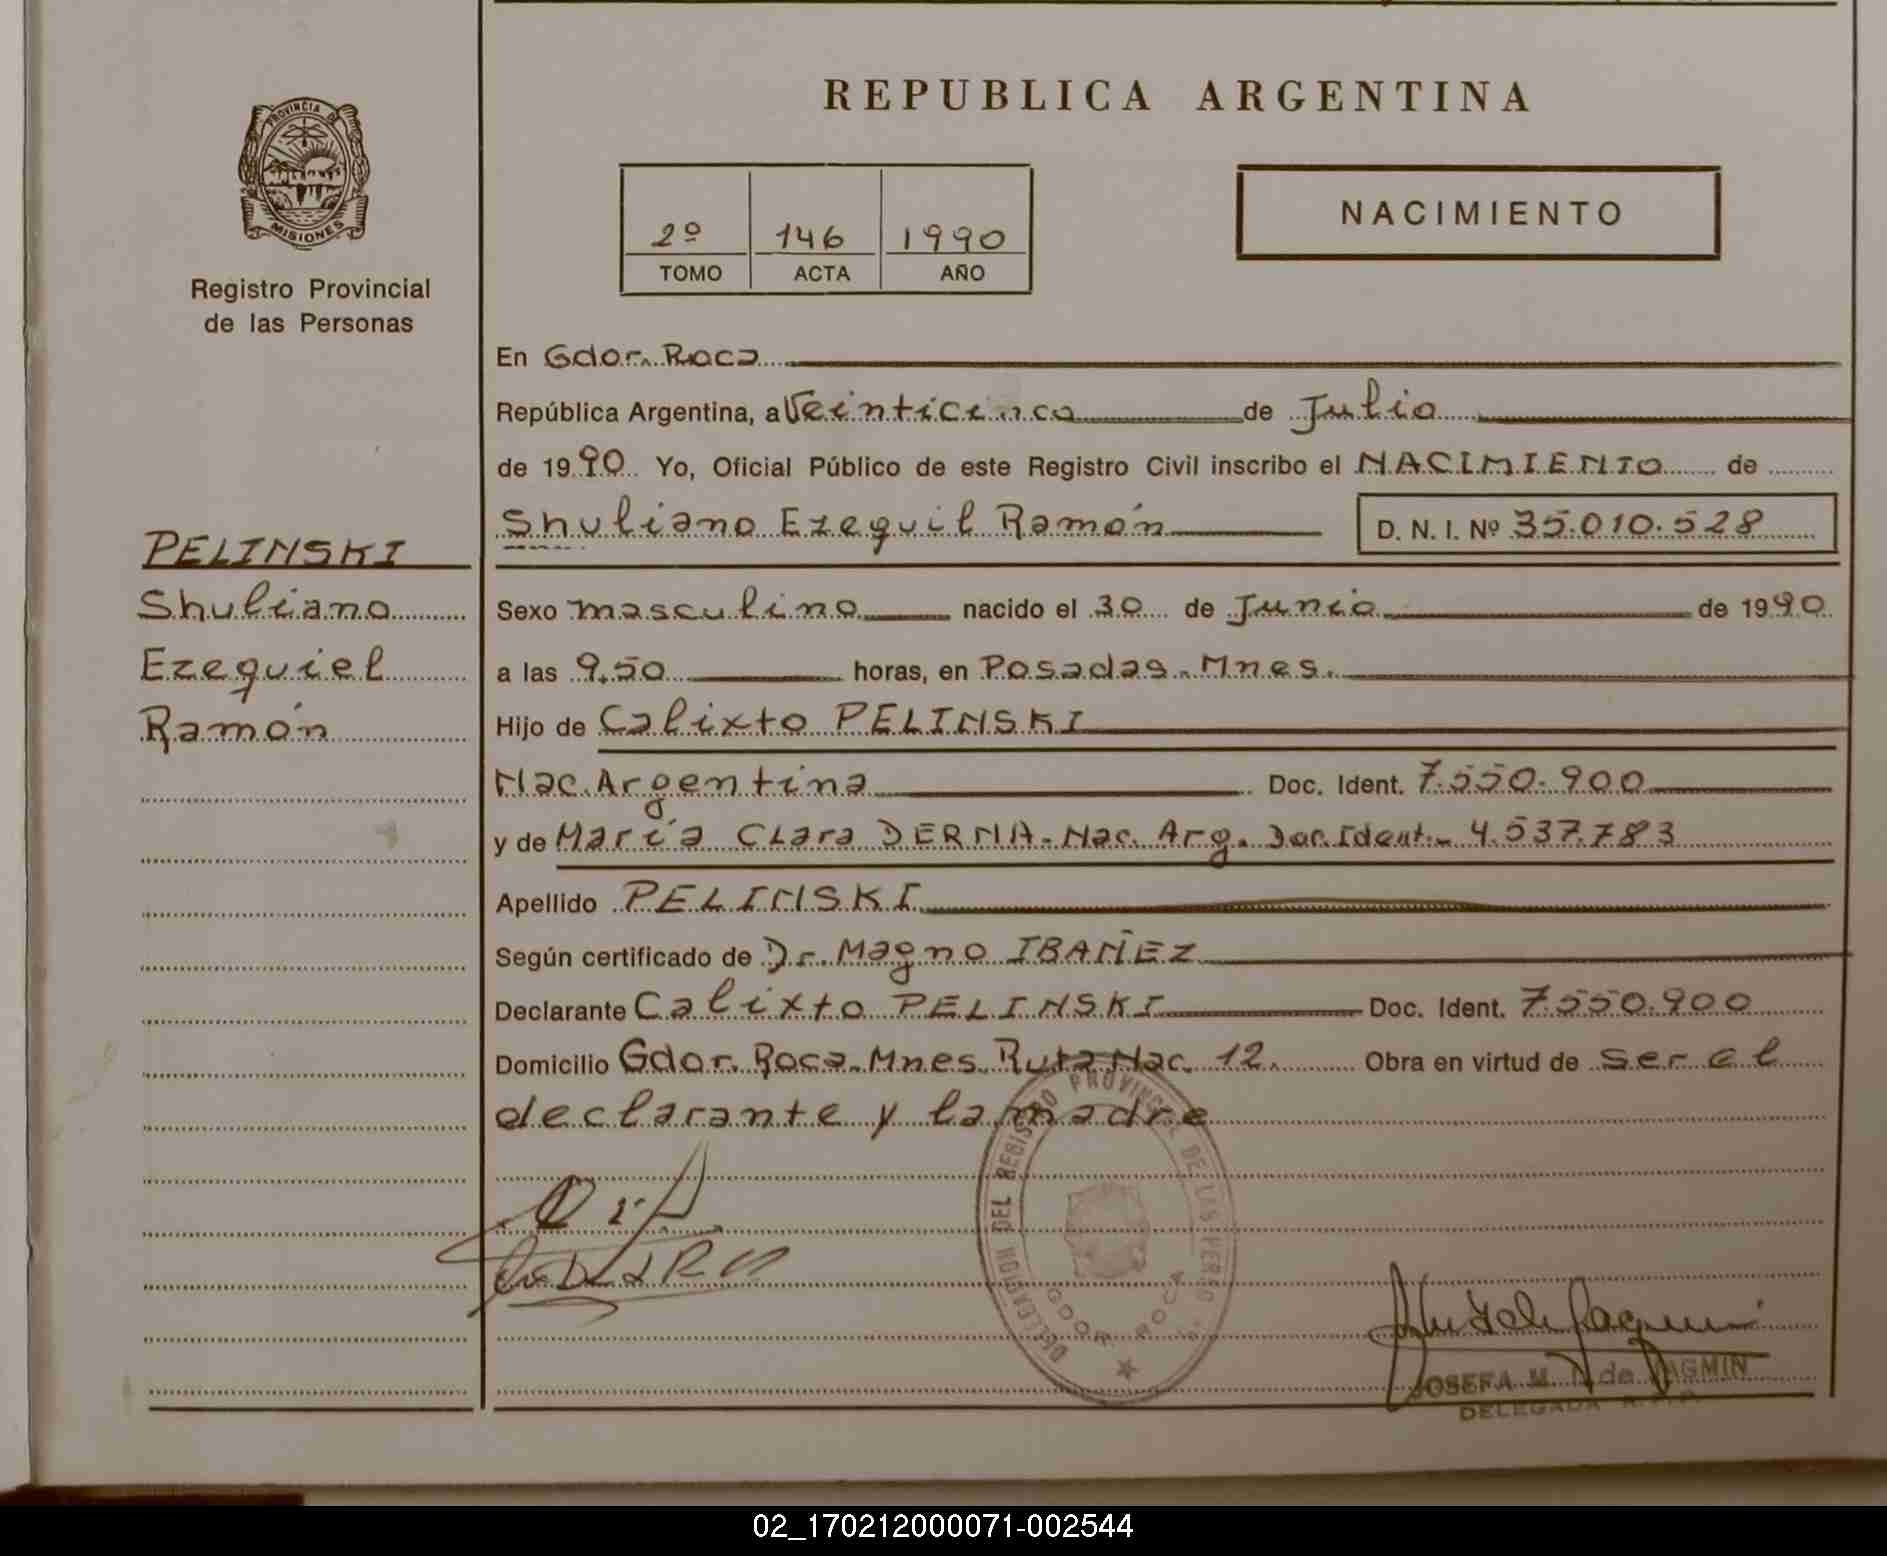 REPUBLICA ARGENTINA
PROVINCIA DE
MISIONES
Registro Provincial
de las Personas
2º 146 1990
TOMO ACTA AÑO
NACIMIENTO
En Gdor. Roca
República Argentina, a Veinticinco de Julio
de 1990 Yo, Oficial Público de este Registro Civil inscribo el NACIMIENTO de
Shuliano Ezequil Ramón D. N. I. Nº 35.010.528
PELINSKI
Shuliano
Ezequiel
Ramón
Sexo masculino nacido el 30 de Junio de 1990
a las 9.50 horas, en Posadas. Mnes.
Hijo de Calixto PELINSKI
Nac. Argentina Doc. Ident. 7.550.900
y de María Clara DERNA - Nac. Arg. Doc. Ident.- 4.537.783
Apellido PELINSKI
Según certificado de Dr. Magno IBAÑEZ
Declarante Calixto PELINSKI Doc. Ident. 7.550.900
Domicilio Gdor. Roca. Mnes. Ruta Nac. 12. Obra en virtud de ser el
declarante y la madre
DELEGACION DEL REGISTRO PROVINCIAL DE LAS PERSO
GDOR ROCA
JOSEFA M. de YAGMIN
DELEGADA R.P.P.
02_170212000071-002544